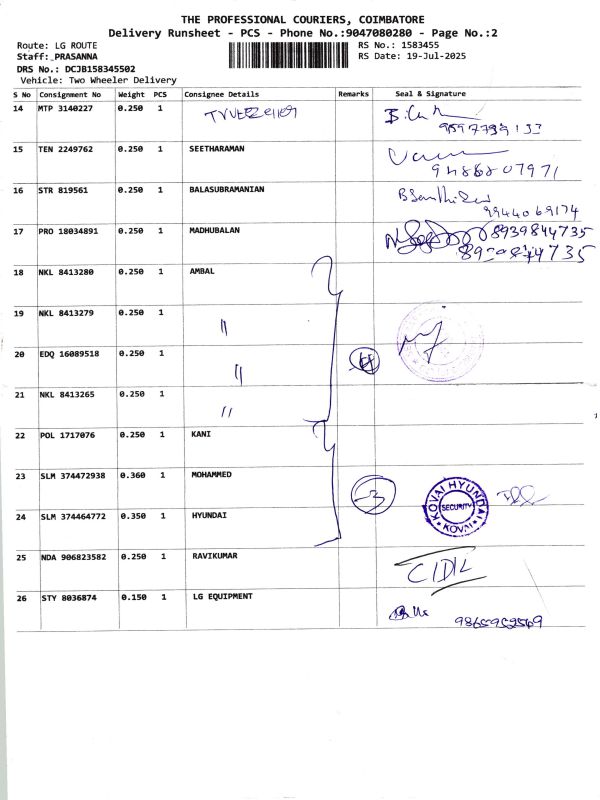 THE PROFESSIONAL COURIERS, COIMBATORE
Delivery Runsheet - PCS - Phone No.:9047080280 - Page No.:2
Route: LG ROUTE RS No.: 1583455
Staff: PRASANNA RS Date: 19-Jul-2025
DRS No.: DCJB158345502
Vehicle: Two Wheeler Delivery
S No Consignment No Weight PCS Consignee Details Remarks Seal & Signature
14 MTP 3140227 0.250 1
15 TEN 2249762 0.250 1 SEETHARAMAN
9486807971
16 STR 819561 0.250 1 BALASUBRAMANIAN
9944069174
17 PRO 18034891 0.250 1 MADHUBALAN 8939844735
8939844735
18 NKL 8413280 0.250 1 AMBAL
19 NKL 8413279 0.250 1 "
20 EDQ 16089518 0.250 1 " 4
21 NKL 8413265 0.250 1 "
22 POL 1717076 0.250 1 KANI
23 SLM 374472938 0.360 1 MOHAMMED 3
KOVAI HYUNDAI
SECURITY
KOVAI
24 SLM 374464772 0.350 1 HYUNDAI
25 NDA 906823582 0.250 1 RAVIKUMAR
26 STY 8036874 0.150 1 LG EQUIPMENT